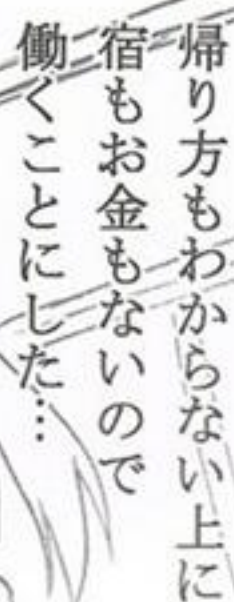 帰り方もわからない上に
宿もお金もないので
働くことにした…